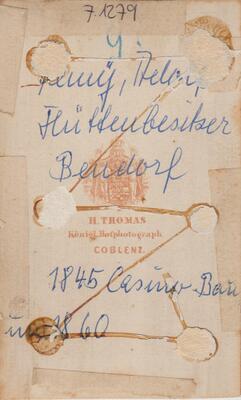 7.1279
4.
Remy, Heinr,
Hüttenbesitzer
Bendorf
H. THOMAS
Königl. Hofphotograph
COBLENZ.
1845 Casino-Bau
um 1860